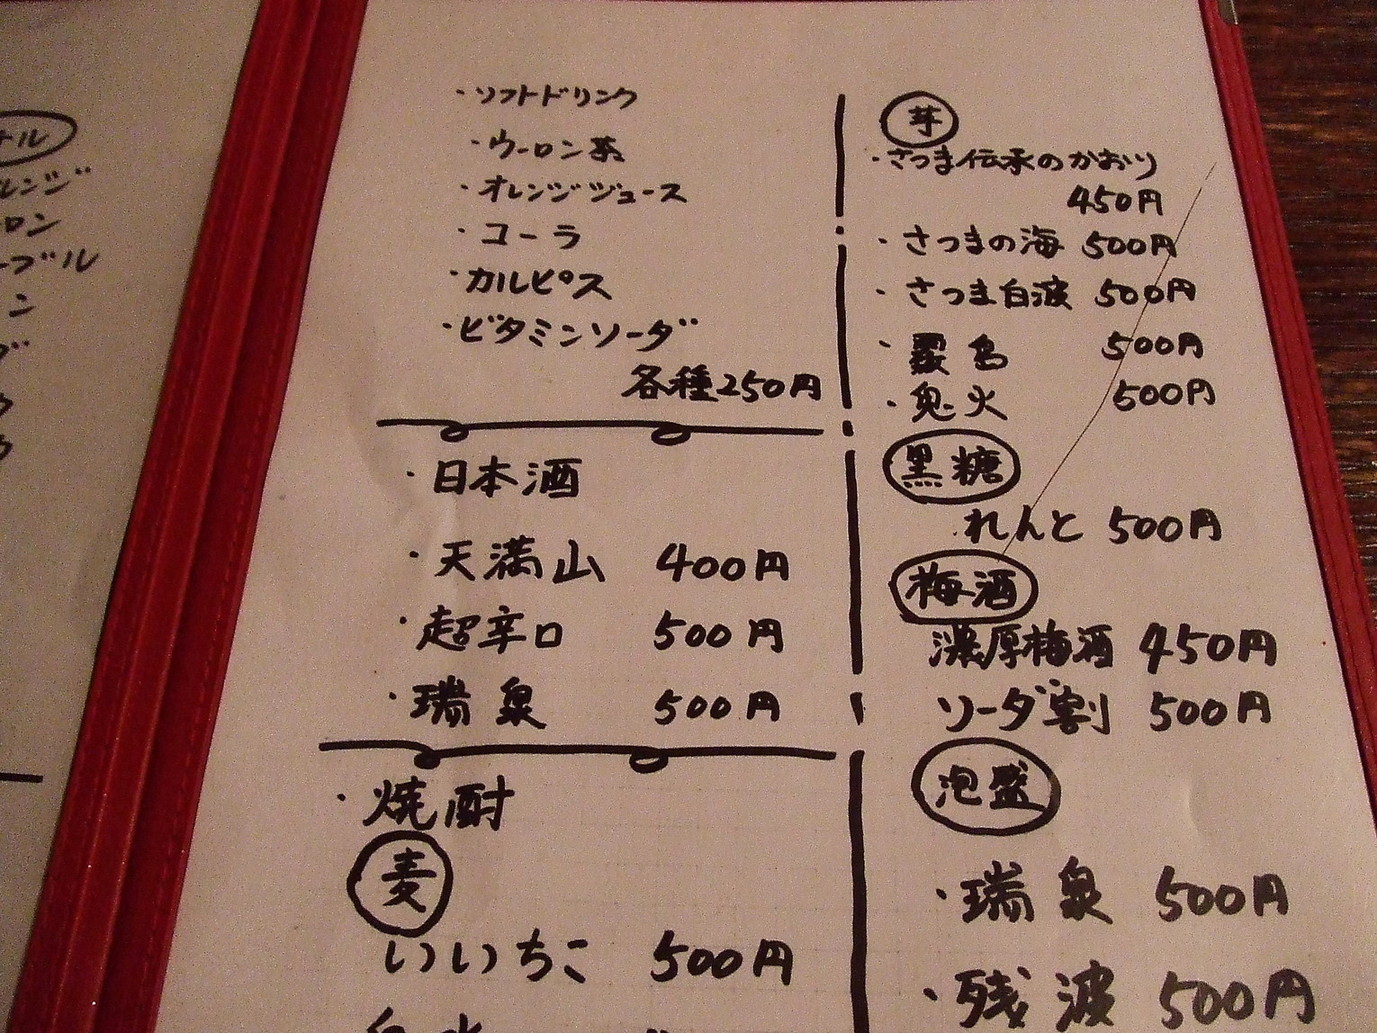 ・ソフトドリンク
・ウーロン茶
・オレンジジュース
・コーラ
・カルピス
・ビタミンソーダ
各種250円
・日本酒
・天満山 400円
・超辛口 500円
・瑞泉 500円
・焼酎
麦
いいちこ 500円
芋
・さつま伝承のかおり
450円
・さつまの海 500円
・さつま白波 500円
・霧島 500円
・鬼火 500円
黒糖
れんと 500円
梅酒
濃厚梅酒 450円
ソーダ割 500円
泡盛
・瑞泉 500円
・残波 500円